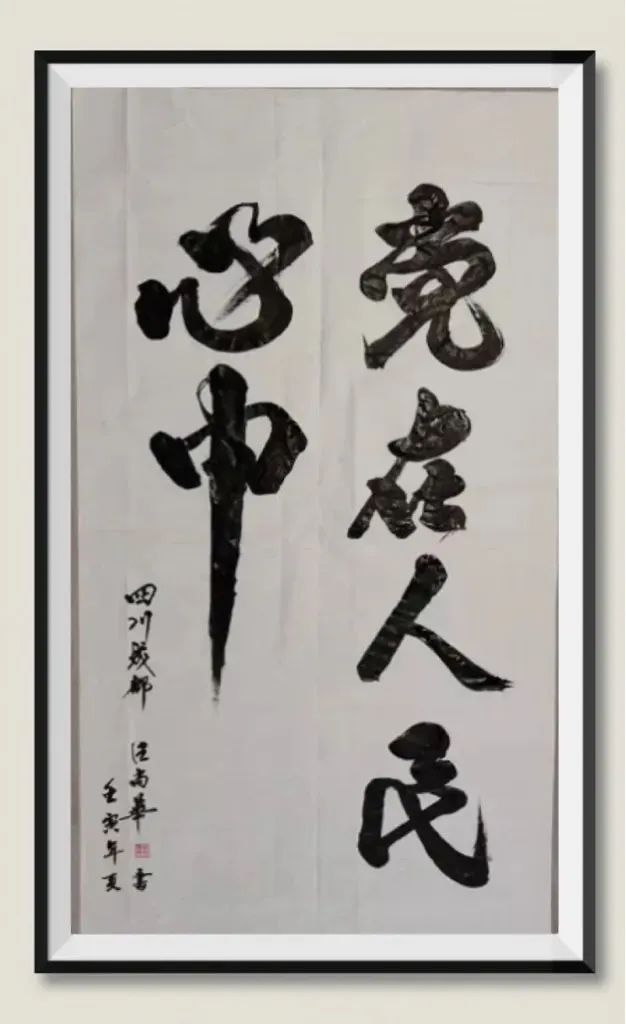 党在人民
心中
四川成都 汪尚華 書
壬寅年夏